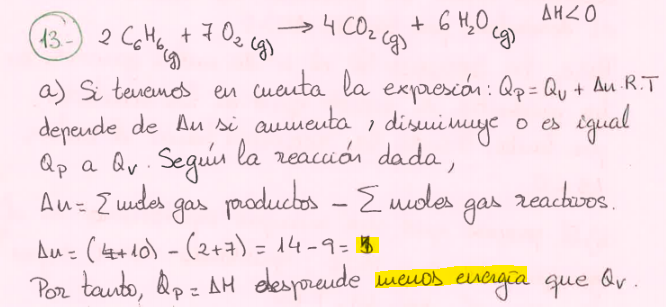 13.- 2 C₆H₆(g) + 7 O₂(g) → 4 CO₂(g) + 6 H₂O(g) ΔH<0
a) Si tenemos en cuenta la expresión: Qp = Qv + Δn.R.T
depende de Δn si aumenta, disminuye o es igual
Qp a Qv. Según la reacción dada,
Δn = Σ moles gas productos – Σ moles gas reactivos.
Δn = (4+10) – (2+7) = 14 – 9 =
Por tanto, Qp = ΔH desprende menos energía que Qv.